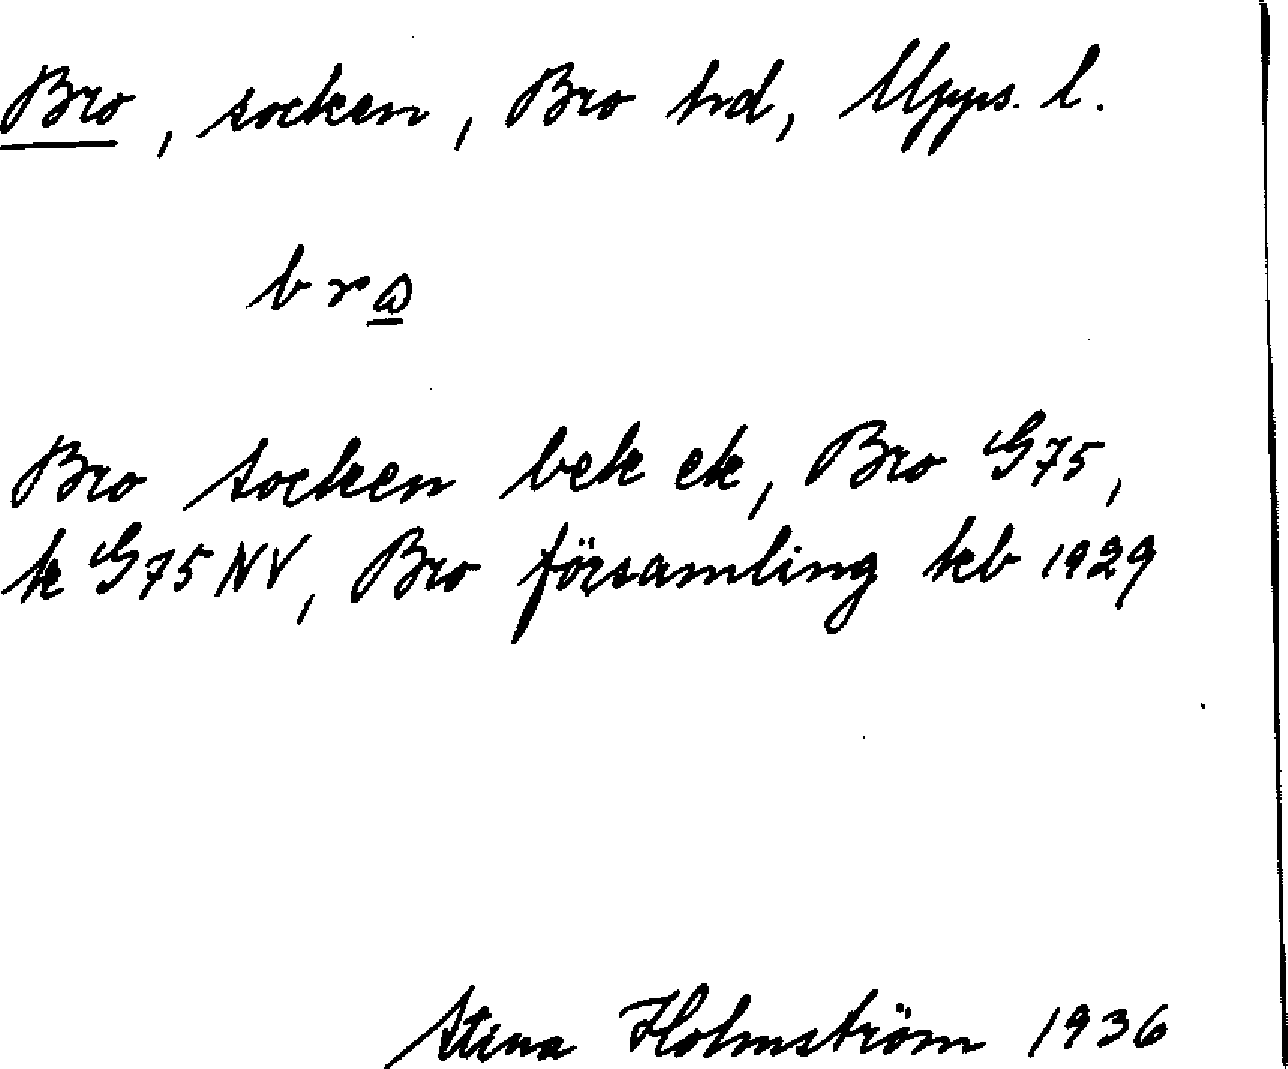 Bro, socken, Bro hd, Upps. l.
Bro socken bek ek, Bro G75,
k G75 NV, Bro församling kb 1929
Stina Holmström 1936